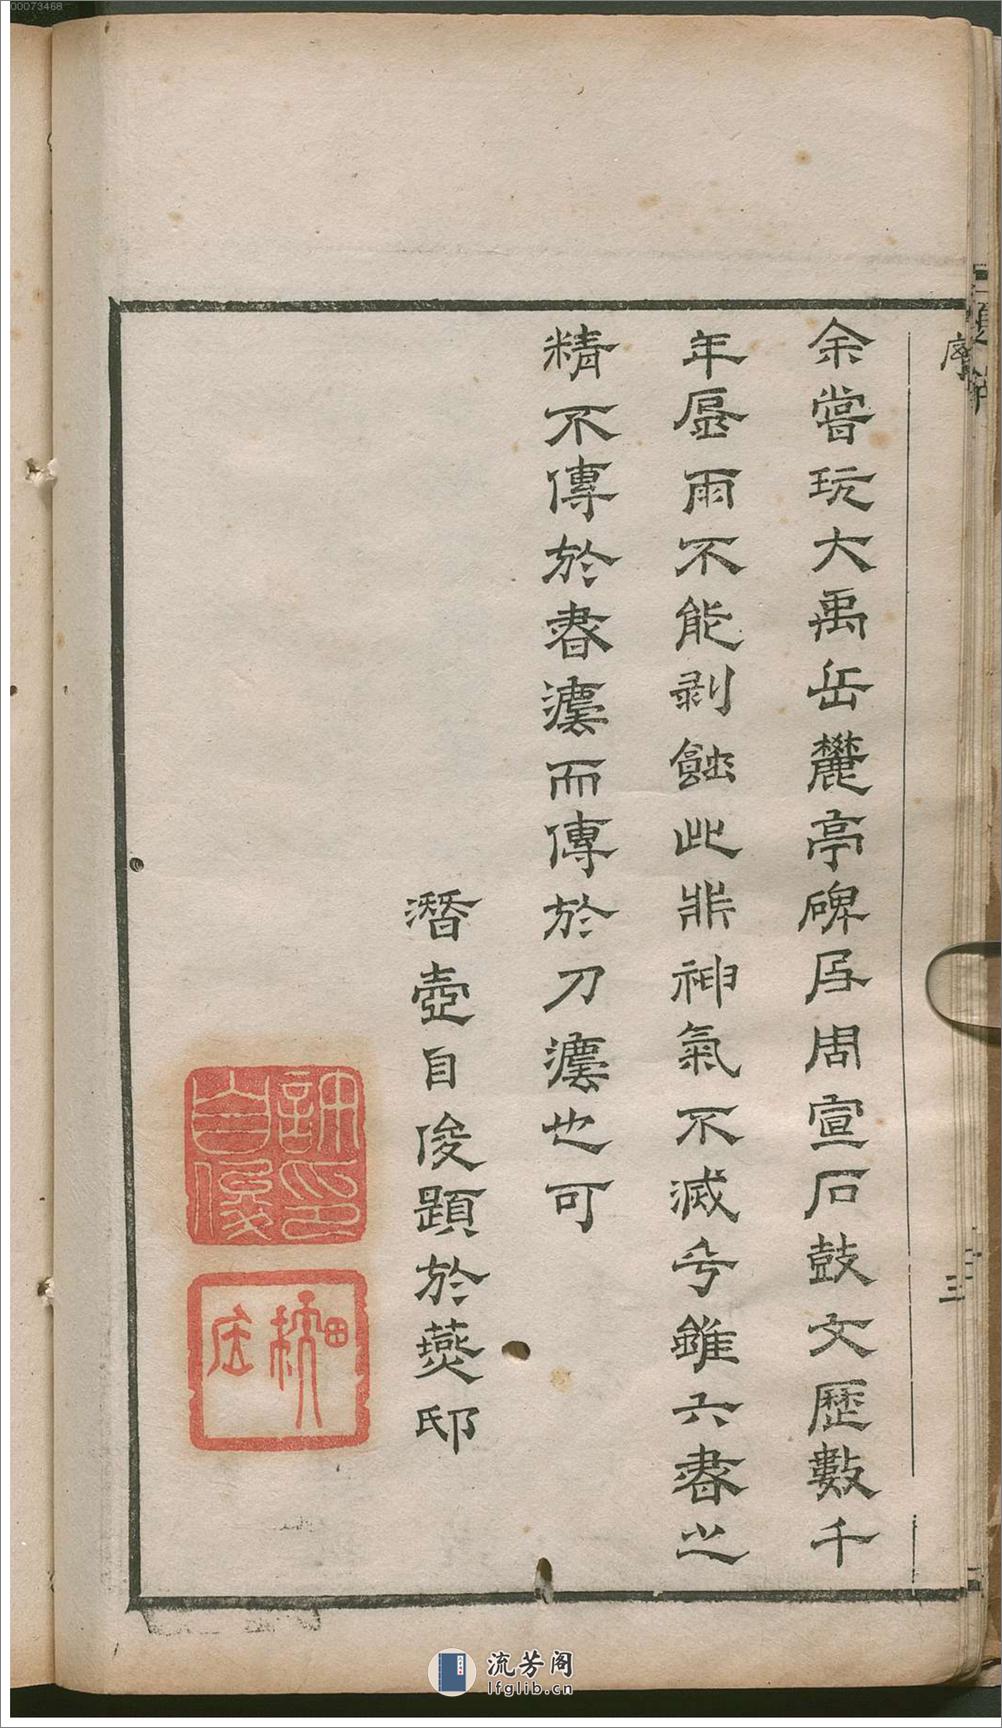 序
三
余嘗玩大禹岳麓亭碑及周宣石鼓文歷數千
年風雨不能剥蝕此非神氣不滅乎雖六書之
精不傳於書灋而傳於刀灋也可
潛壺自俊題於燕邸
印自俊
流芳阁
lfglib.cn
00073468